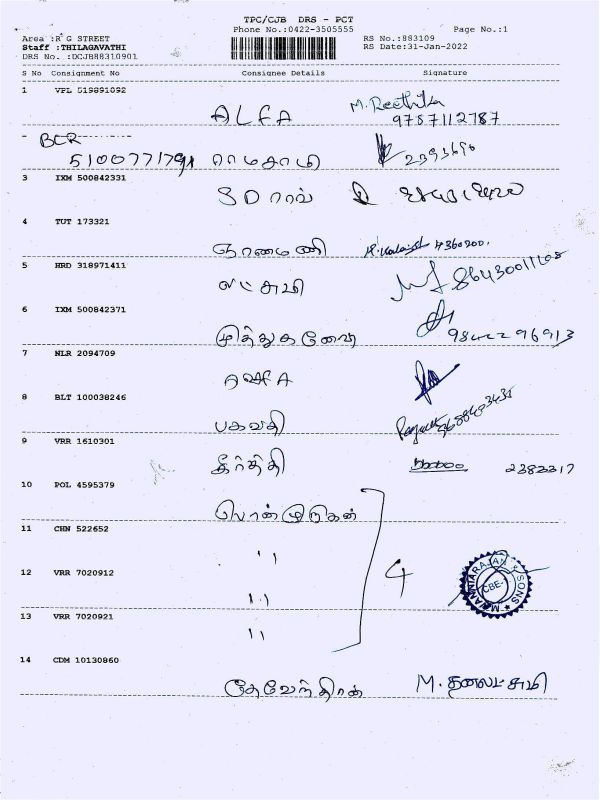 TPC/CJB DRS - PCT
Phone No.:0422-3505555
Page No.:1
Area :R G STREET
RS No.:883109
Staff :THILAGAVATHI
RS Date:31-Jan-2022
DRS No. :DCJB88310901
S No Consignment No Consignee Details Signature
1 VPL 519891092 ALFA M. Reethika
9787112787
BCR
5100771791 ராமசாமி
3 IXM 500842331 SD ராவ்
4 TUT 173321 ஞானமணி
5 HRD 318971411 லட்சுமி
6 IXM 500842371
7 NLR 2094709
8 BLT 100038246 பகவதி
9 VRR 1610301 கீர்த்தி 2382217
10 POL 4595379 பொன்முருகன்
11 CHN 522652 ''
12 VRR 7020912 '' 4
13 VRR 7020921 ''
14 CDM 10130860 M. தனலட்சுமி
CBE-1